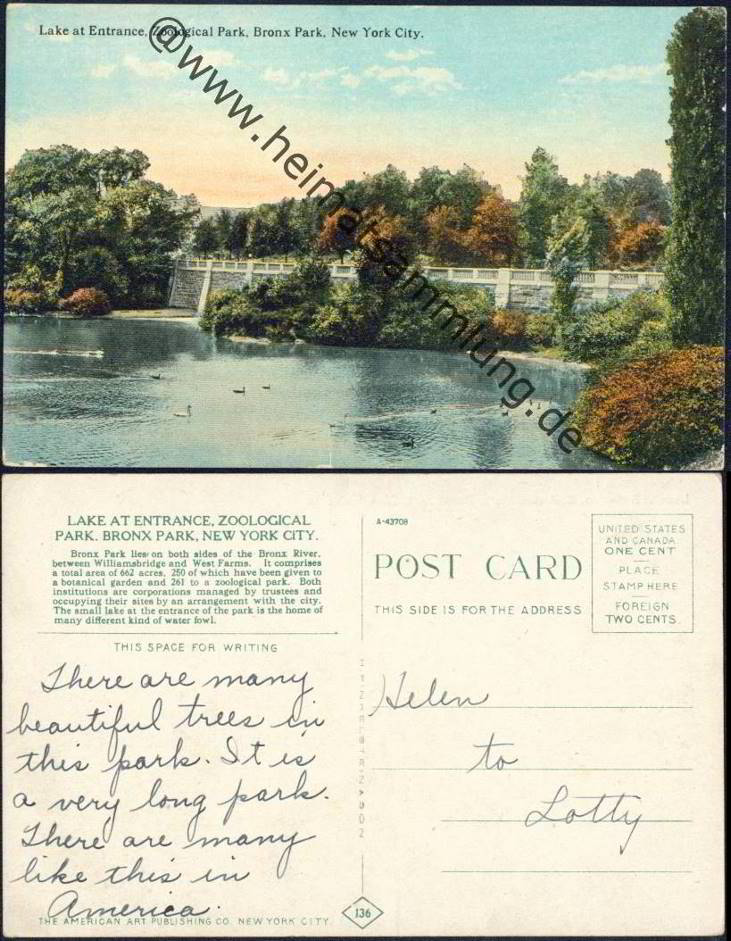 Lake at Entrance, Zoological Park, Bronx Park, New York City.
@www.heimatsammlung.de
LAKE AT ENTRANCE, ZOOLOGICAL
PARK. BRONX PARK, NEW YORK CITY.
Bronx Park lies on both sides of the Bronx River,
between Williamsbridge and West Farms. It comprises
a total area of 662 acres, 250 of which have been given to
a botanical garden and 261 to a zoological park. Both
institutions are corporations managed by trustees and
occupying their sites by an arrangement with the city.
The small lake at the entrance of the park is the home of
many different kind of water fowl.
THIS SPACE FOR WRITING
There are many
beautiful trees in
this park. It is
a very long park.
There are many
like this in
America.
THE AMERICAN ART PUBLISHING CO. NEW YORK CITY.
136
A-43708
POST CARD
THIS SIDE IS FOR THE ADDRESS
UNITED STATES
AND CANADA
ONE CENT
PLACE
STAMP HERE
FOREIGN
TWO CENTS.
Helen
to
Lotty